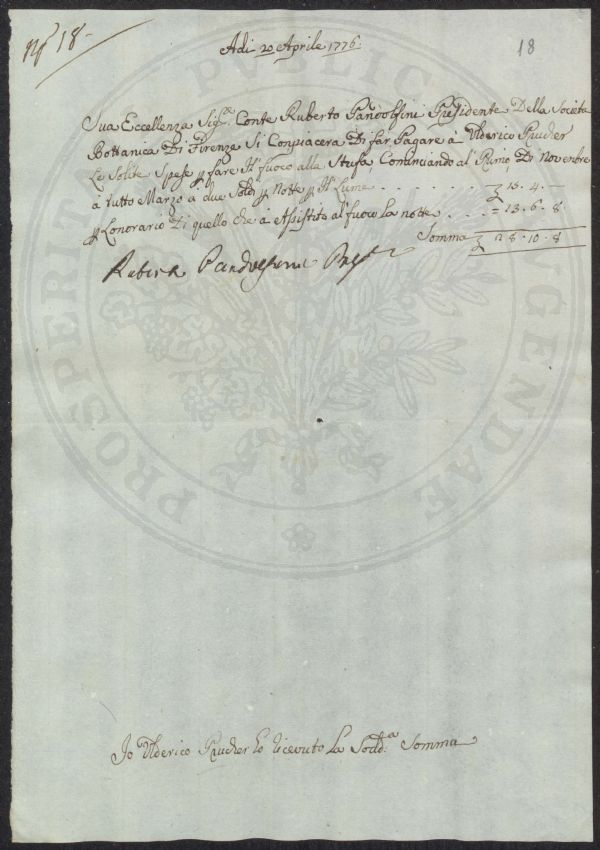 N.º 18-
18
Adi 20 Aprile 1776
Sua Eccellenza Sig.ra Conte Ruberto Pandolfini Presidente Della Societa
Bottanica Di Firenze Si Conpiacera Di far Pagare à Ulderico Prucker
Le Solite Spese p fare Il fuoco alla Stufa, Cominciando al Primo, Di Novembre
à tutto Marzo a due Soldi p Notte p Il Lume . . . . . . . 15.4.—
p Lonorario Di quello che à Assistito al fuoco la notte . . . = 13.6.8
Somma 28.10.8
Ruberto Pandolfini
Io Ulderico Prucker ho ricevuto La Sodd.a Somma
PROSPERITATI PVBLICAE AVGENDAE